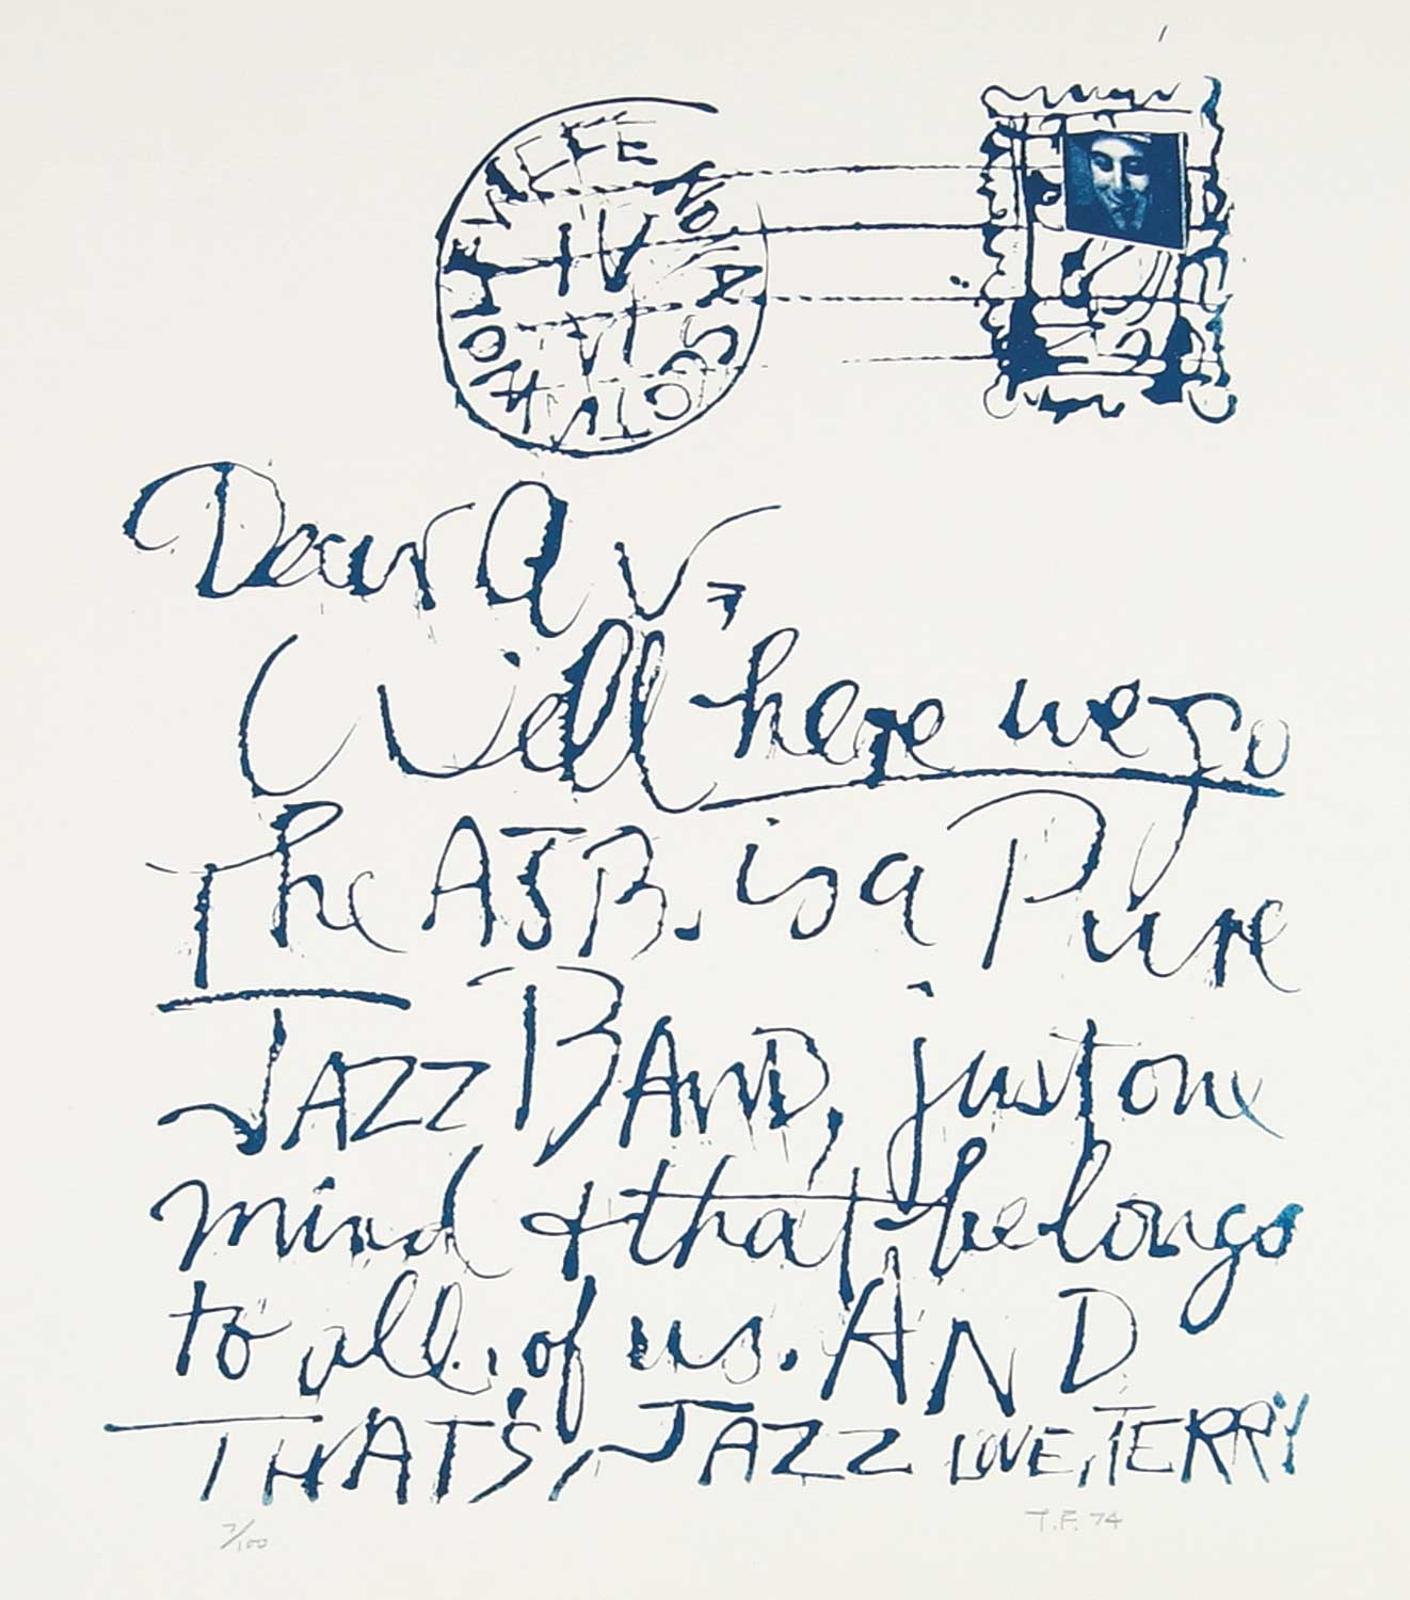 Dear A V,
Well here we go
The AJB. is a Pure
JAZZ BAND, just one
mind & that belongs
to all, of us. AND
THAT'S, JAZZ LOVE, TERRY
7/100
T.F. 74